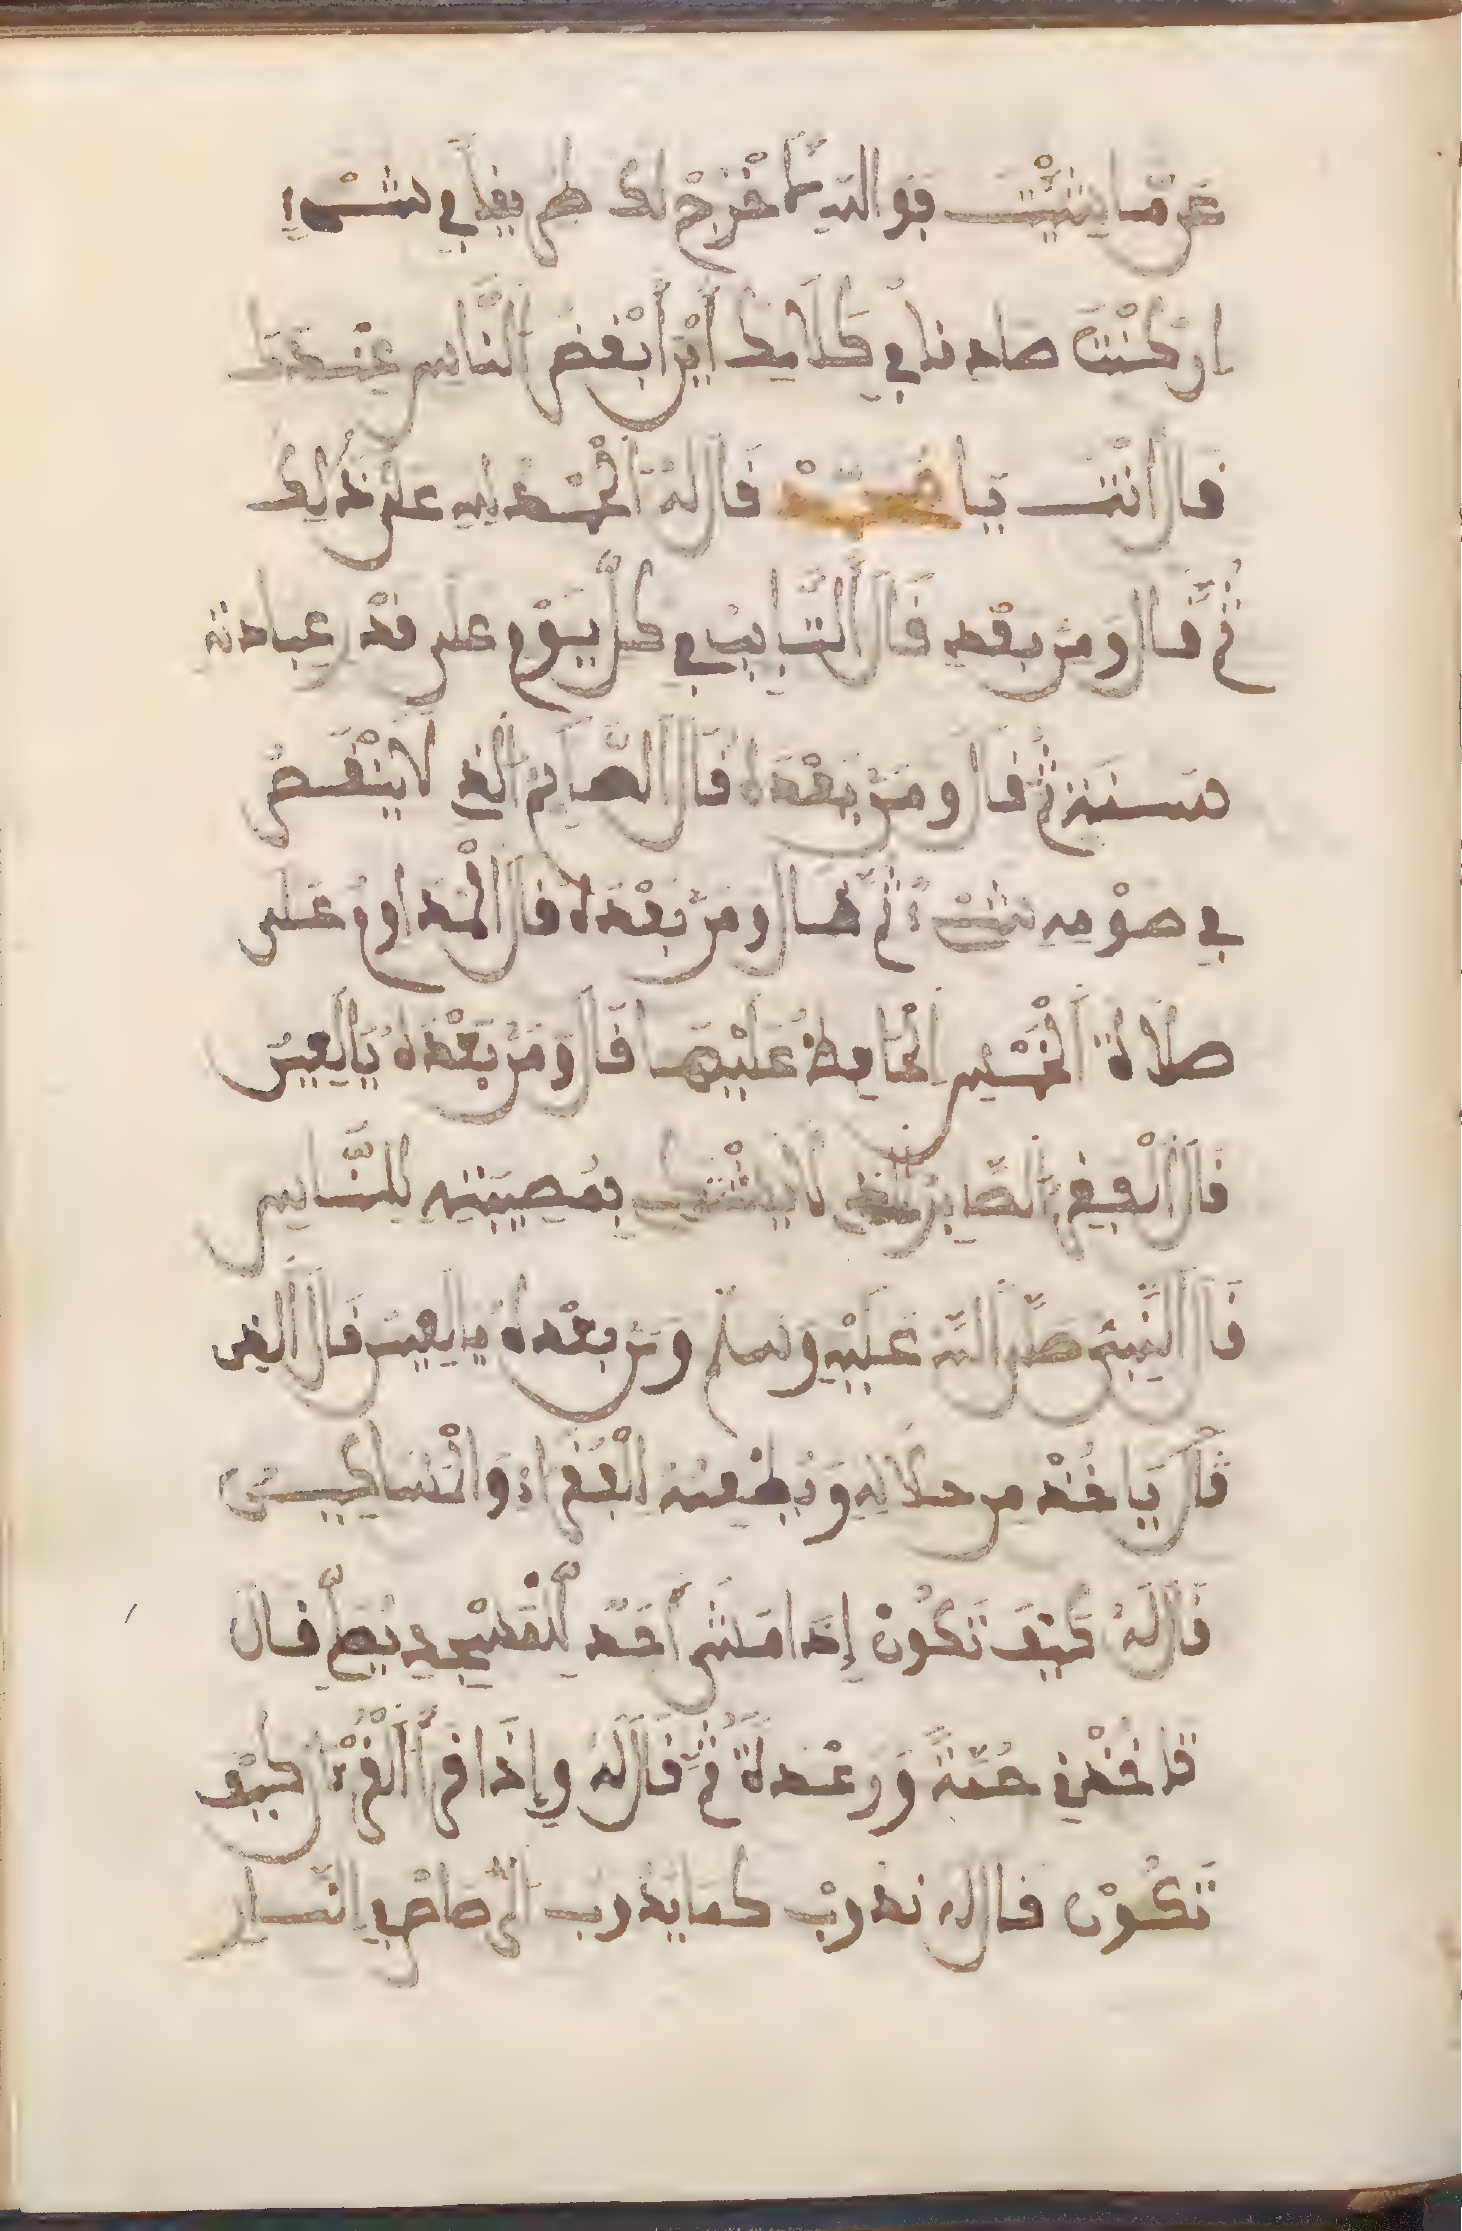 عن ما شيت فوالله لاخرج لك طريقا في شيء
ان كنت صادقا في كلامك اين ابغض الناس عندك
قال انت يا محمد قال له الحمد لله على ذلك
ثم قال ومن بعده قال التايب في كل يوم على قدر عبادته
سنة ثم قال ومن بعده قال الصايم الذي لا ينقص
في صومه شيء ثم قال ومن بعده قال المداوم على
صلاة الخمس الحافظ عليها قال ومن بعده يالعين
قال الفقير الصابر الذي لا يشتكي بمصيبته للناس
قال النبيء صلى الله عليه وسلم ومن بعده يالعين قال الذي
قال ياخذ من حلاله ويطعمه الفقراء والمساكين
قال له كيف تكون إذا مشى أحد للمسجد يصلي قال
تاخذني حمة ورعدة ثم قال له وإذا قرأ القرءان كيف
تكون قال له نذوب كما يذوب الرصاص في النار